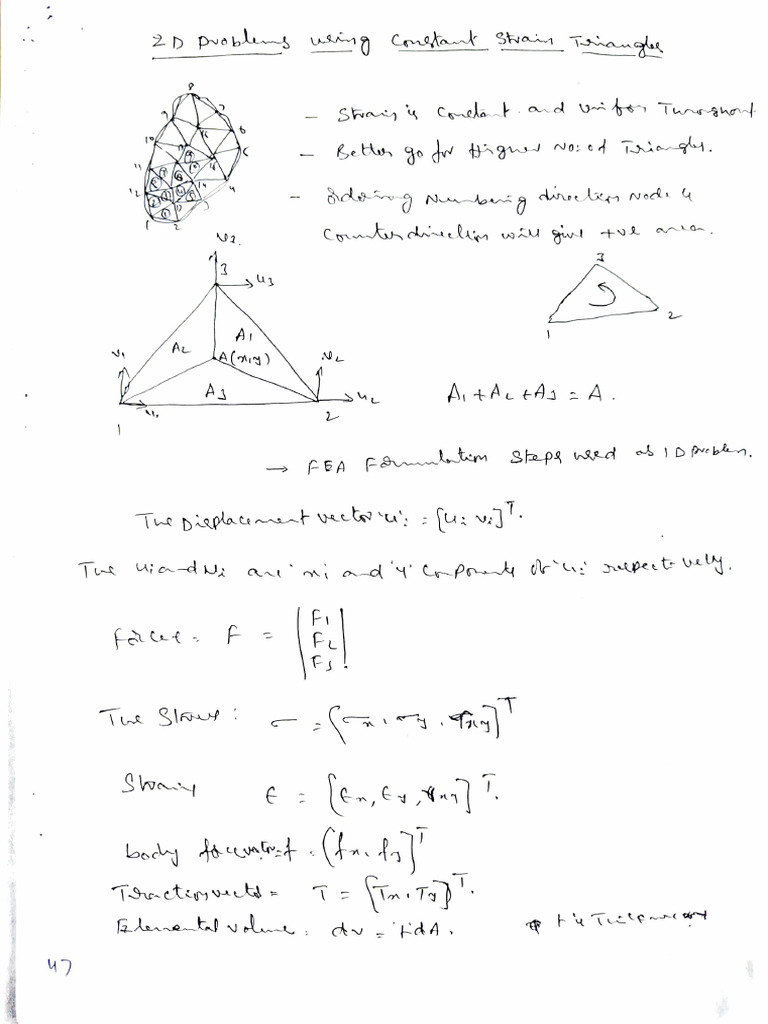 2D Problems using Constant Strain Triangles
- Strain is Constant and Uniform Throughout
- Better go for Higher No: of Triangles.
- Ordering Numbering direction Node 4
Counter direction will give +ve area.
8
9 7
10 16 6
11 5
12 14 4
1 2 3
v3
3 u3
A2 A1
A(x,y)
v1 v2
A3
u1 u2
1 2
3
1 2
A1 + A2 + A3 = A.
→ FEA Formulation Steps used as 1D problem.
The Displacement vector 'u'i = [ui vi]ᵀ.
The ui and vi are xi and 'y' components of 'ui' respectively.
Forces = F = | F1 F2 F3 |
The Stress: σ = [σx, σy, τxy]ᵀ
Strain ϵ = [ϵx, ϵy, γxy]ᵀ.
body force vector f = [fx, fy]ᵀ
Traction vector = T = [Tx, Ty]ᵀ.
Elemental volume: dv = tdA. t is Thickness
47